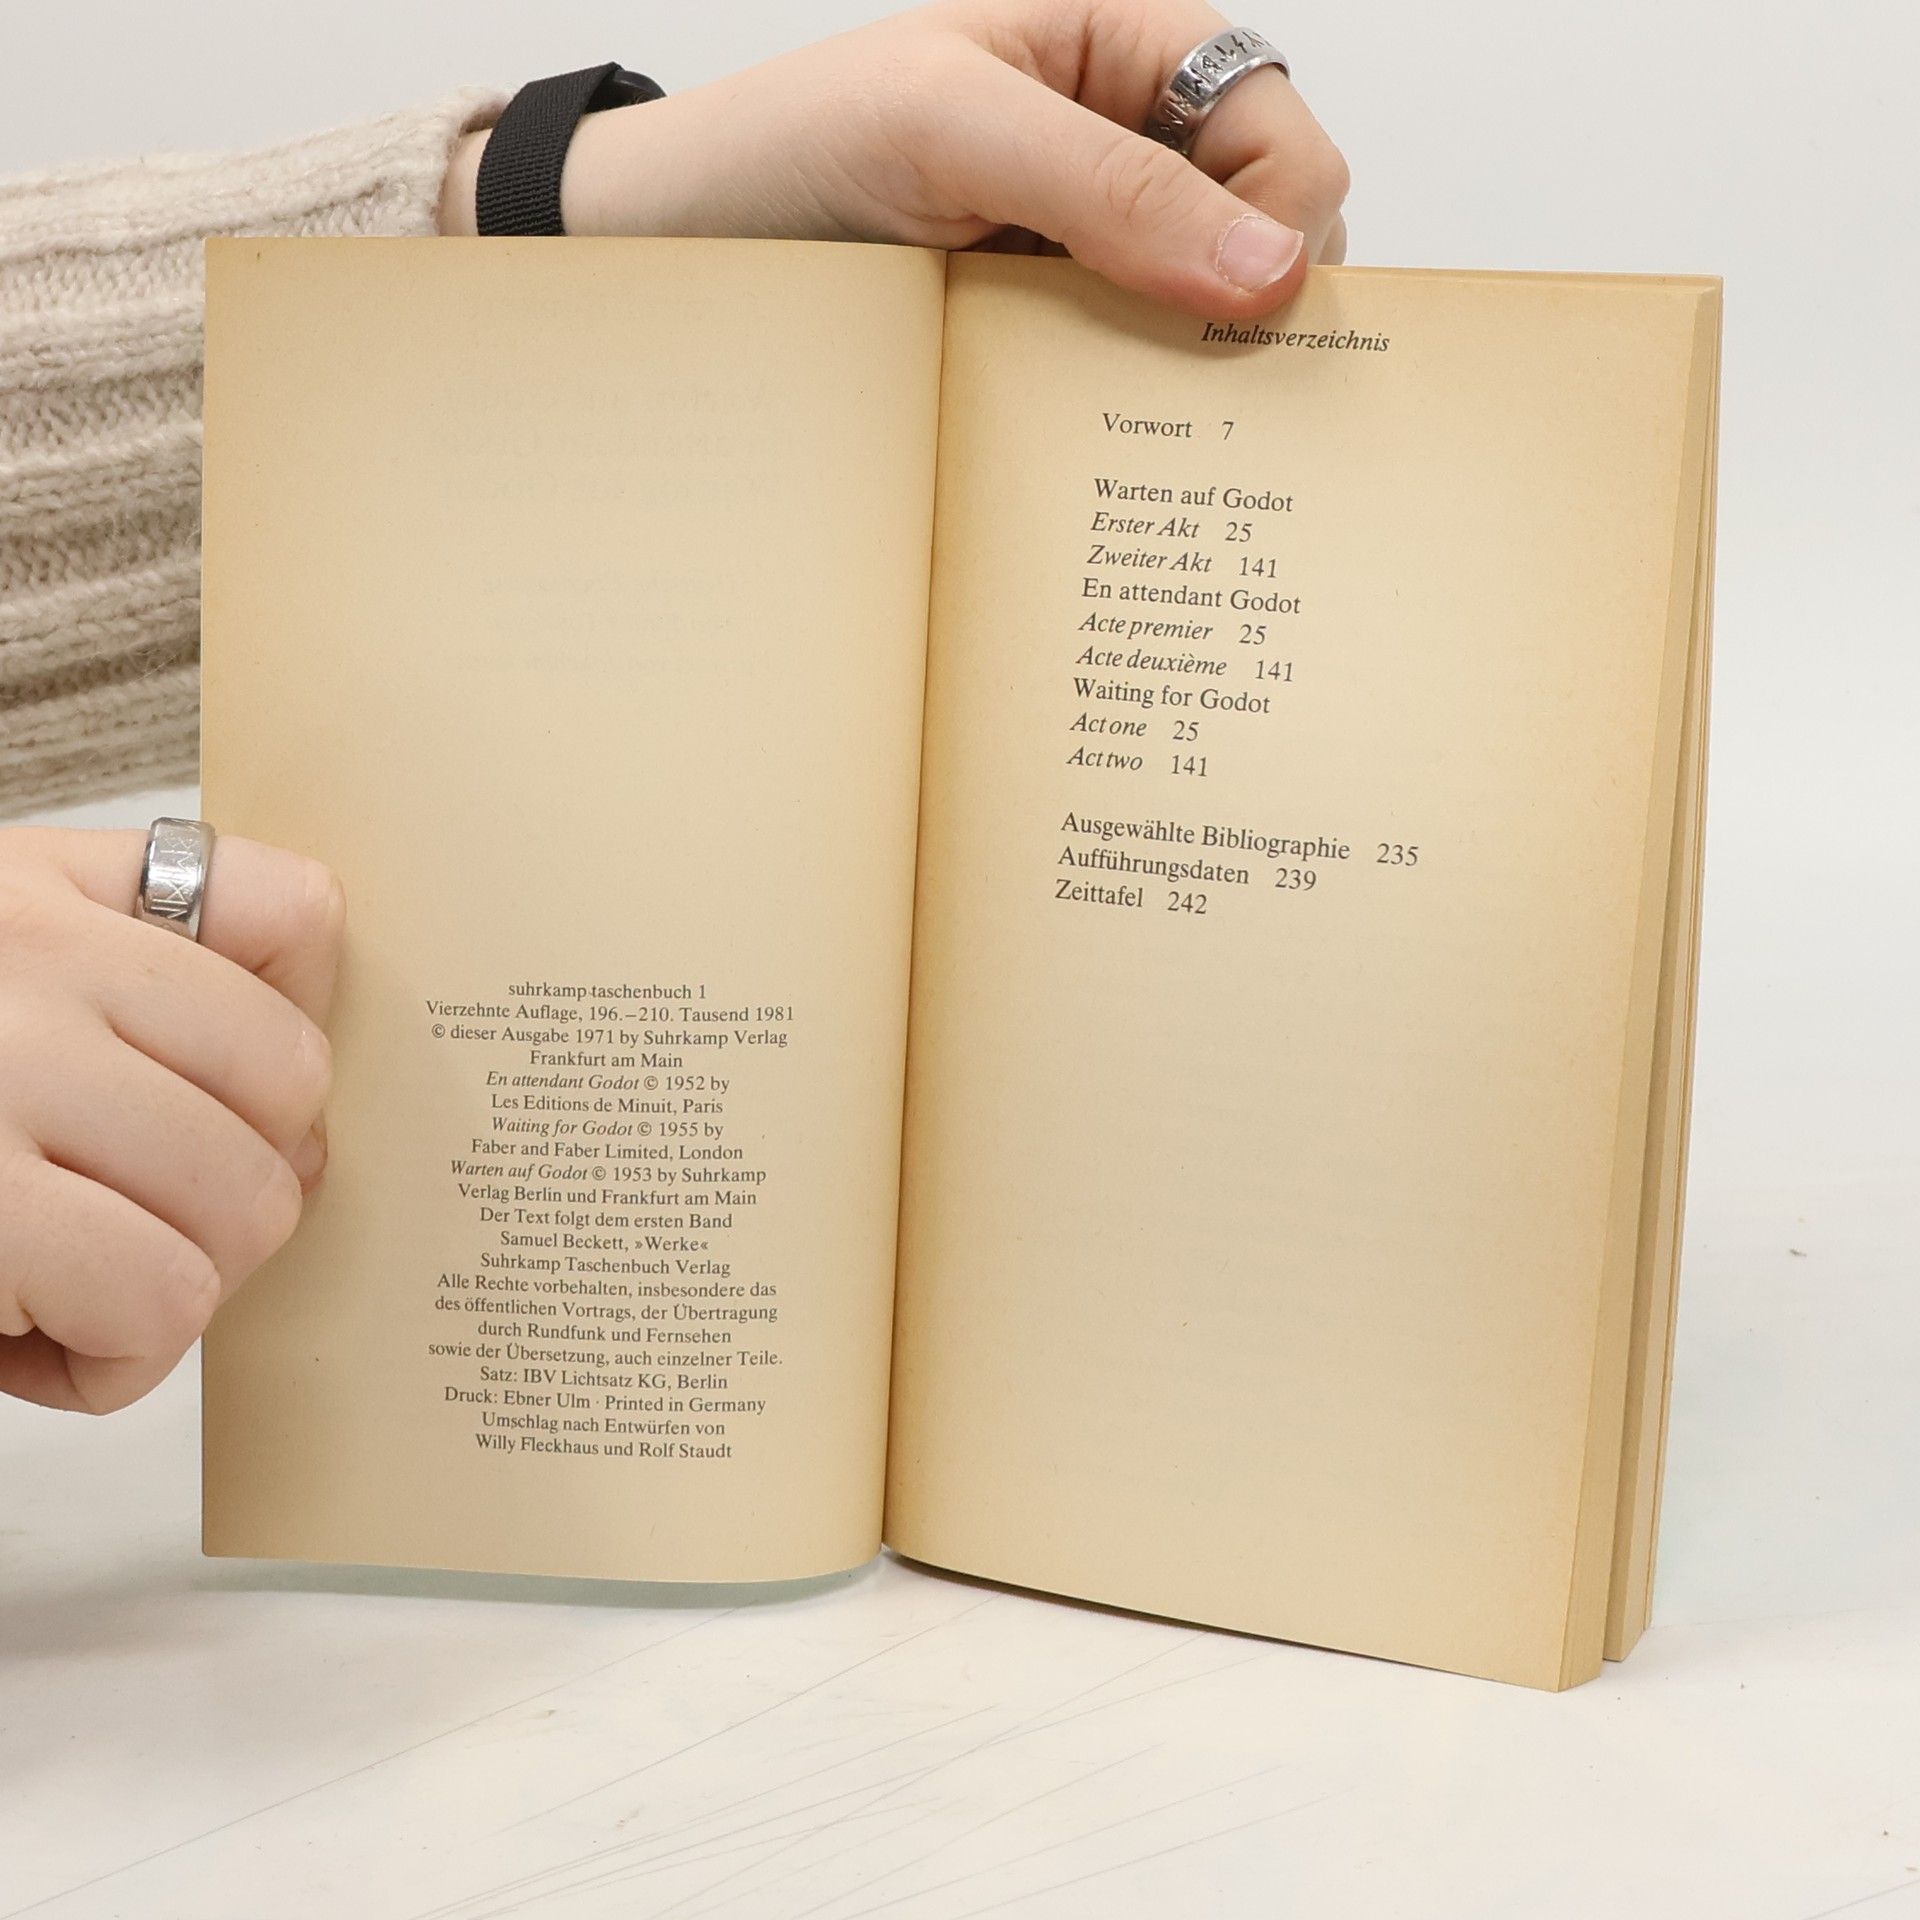 suhrkamp taschenbuch 1
Vierzehnte Auflage, 196.–210. Tausend 1981
© dieser Ausgabe 1971 by Suhrkamp Verlag
Frankfurt am Main
En attendant Godot © 1952 by
Les Editions de Minuit, Paris
Waiting for Godot © 1955 by
Faber and Faber Limited, London
Warten auf Godot © 1953 by Suhrkamp
Verlag Berlin und Frankfurt am Main
Der Text folgt dem ersten Band
Samuel Beckett, »Werke«
Suhrkamp Taschenbuch Verlag
Alle Rechte vorbehalten, insbesondere das
des öffentlichen Vortrags, der Übertragung
durch Rundfunk und Fernsehen
sowie der Übersetzung, auch einzelner Teile.
Satz: IBV Lichtsatz KG, Berlin
Druck: Ebner Ulm · Printed in Germany
Umschlag nach Entwürfen von
Willy Fleckhaus und Rolf Staudt
Inhaltsverzeichnis
Vorwort 7
Warten auf Godot
Erster Akt 25
Zweiter Akt 141
En attendant Godot
Acte premier 25
Acte deuxième 141
Waiting for Godot
Act one 25
Act two 141
Ausgewählte Bibliographie 235
Aufführungsdaten 239
Zeittafel 242